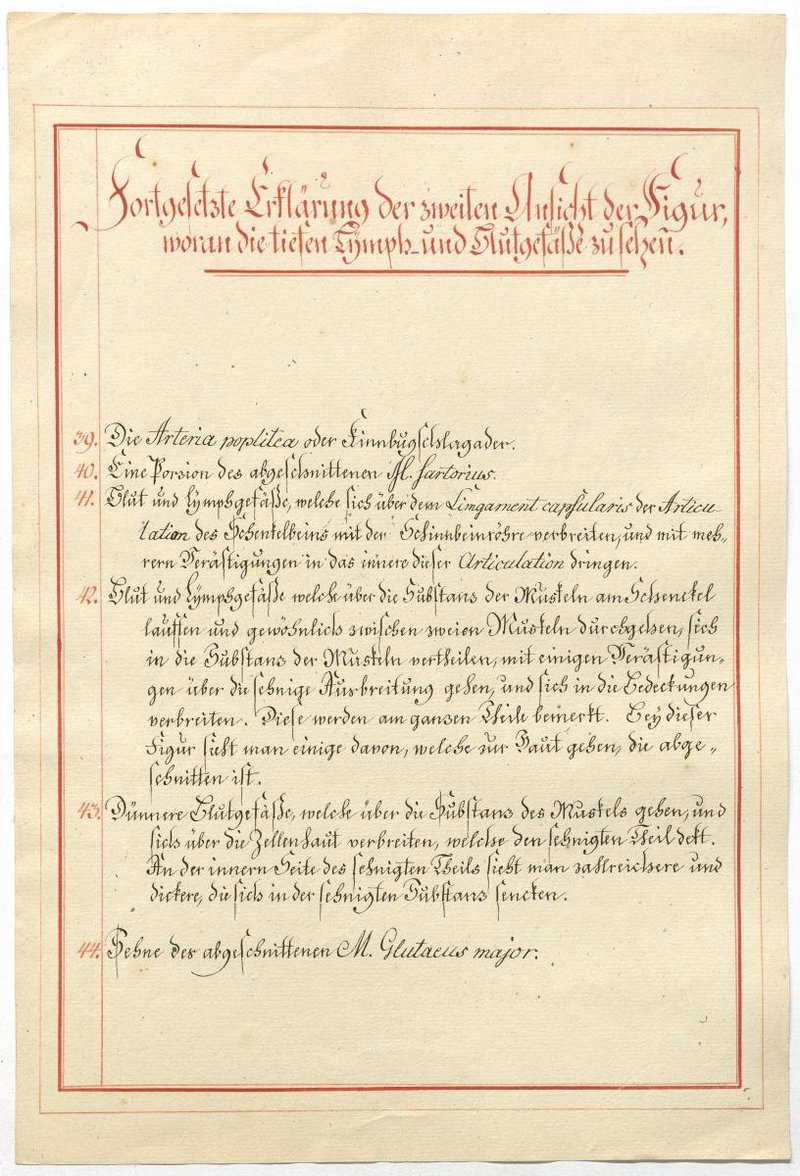 Fortgesetzte Erklärung der zweiten Ansicht der Figur,
woran die tiefen Lymph- und Blutgefäße zu sehen.
39. Die Arteria poplitea oder Kinnbugschlagader.
40. Eine Porsion des abgeschnittenen M. sartorius.
41. Blut und Lymphgefäße, welche sich über dem Limgament capsularis der Articu-
lation des Schenkelbeins mit der Schinnbeinröhre verbreiten, und mit meh-
rern Verästigungen in das innere dieser Articulation dringen.
42. Blut und Lymphgefäße welche über die Substans der Muskeln am Schenckel
lauffen und gewöhnlich zwischen zweien Muskeln durchgehen, sich
in die Substans der Muskeln vertheilen, mit einigen Verästigun-
gen über die sehnige Ausbreitung gehen, und sich in die Bedeckungen
verbreiten. Diese werden am ganzen Theile bemerkt. Bey dieser
Figur sieht man einige davon, welche zur Haut gehen, die abge-
schnitten ist.
43. Dünnere Blutgefäße, welche über die Substans des Muskels gehen, und
sich über die Zellenhaut verbreiten, welche den sehnigten Theil dekt.
An der innern Seite des sehnigten Theils sieht man zahlreichere und
dickere, die sich in der sehnigten Substans sencken.
44. Sehne des abgeschnittenen M. Glutaeus major.